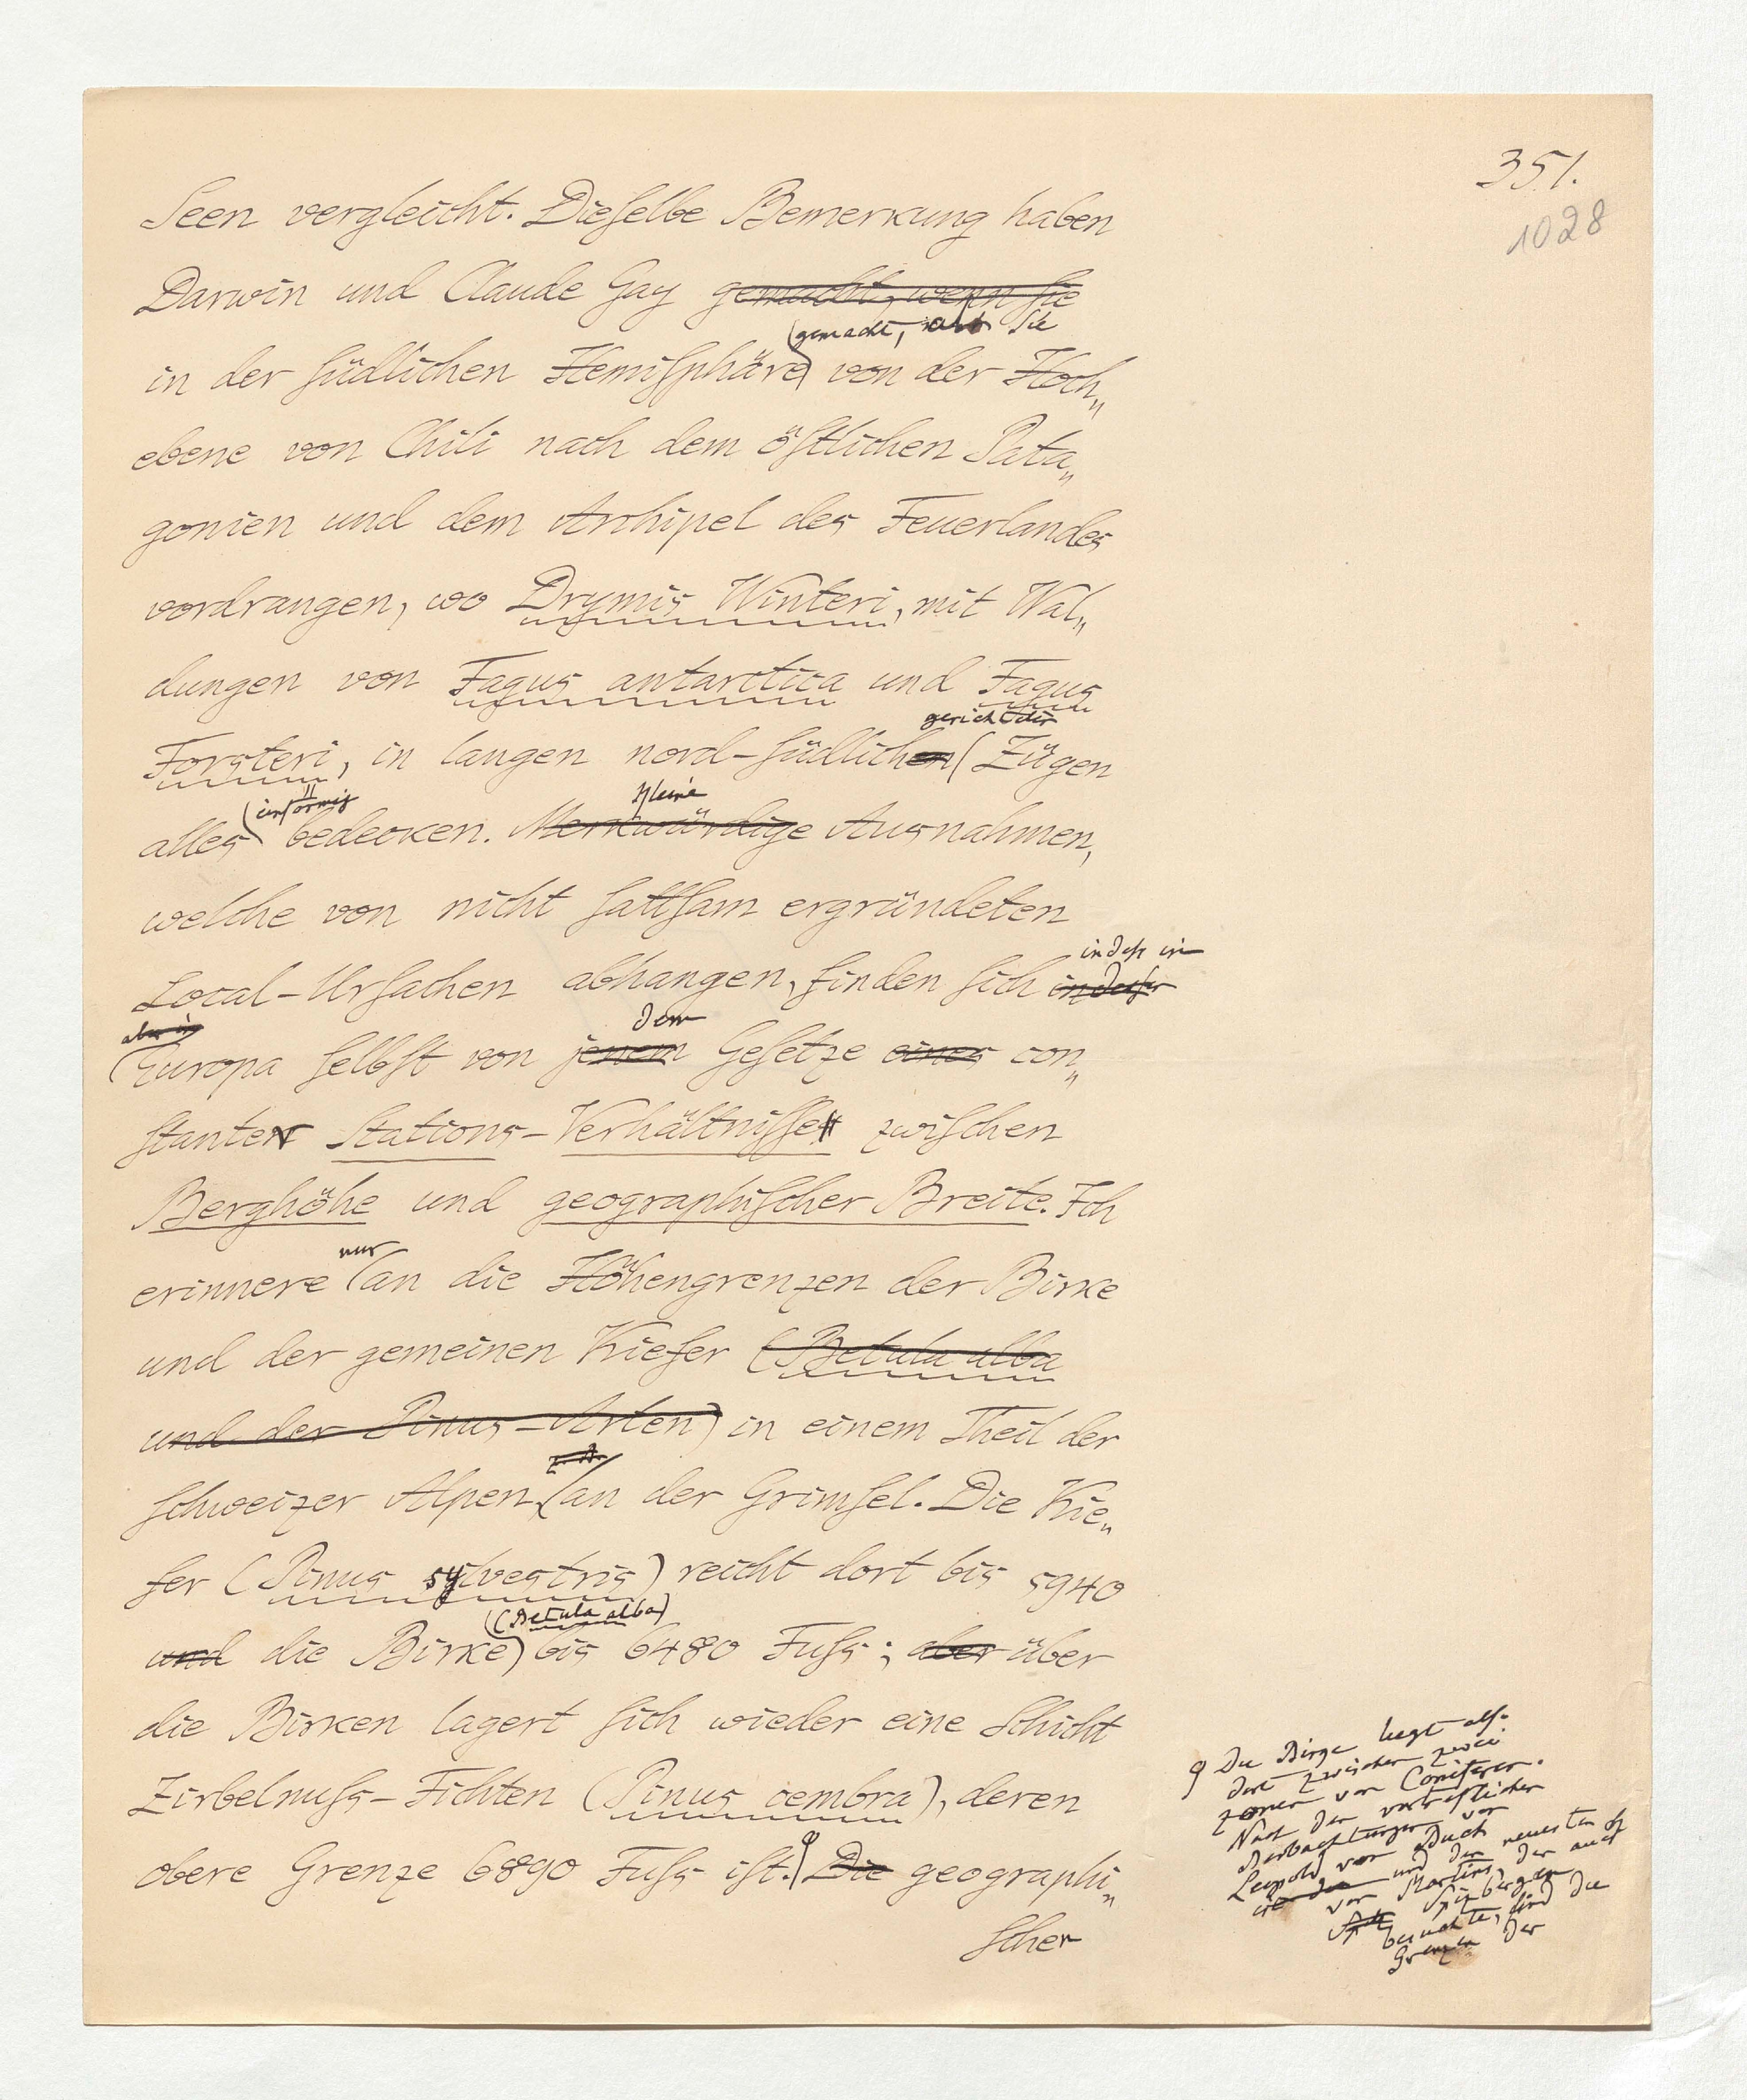 351.
1028
Seen vergleicht. Dieselbe Bemerkung haben
Darwin und Claude Gay gemacht, wenn sie
(gemacht, als sie
in der südlichen Hemisphäre) von der Hoch„
ebene von Chili nach dem östlichen Pata„
gonien und dem Archipel des Feuerlandes
vordrangen, wo Drymis Winteri, mit Wal„
dungen von Fagus antarctica und Fagus
gerichteten
Forsteri, in langen nord-südlichen (Zügen
einförmig kleine
alles bedecken. Merkwürdige Ausnahmen,
welche von nicht sattsam ergründeten
indess in
Local-Ursachen abhangen, finden sich in dieser
aber in dem
Europa selbst von jenem Gesetze eines con„
stanter Stations-Verhältnisse zwischen
Berghöhe und geographischer Breite. Ich
nur
erinnere (an die Höhengrenzen der Birke
und der gemeinen Kiefer (Betula alba
und der Pinus-Arten) in einem Theil der
schweizer Alpen, (an der Grimsel. Die Kie„
fer (Pinus sylvestris) reicht dort bis 5940
(Betula alba)
und die Birke) bis 6480 Fuss; aber über
die Birken lagert sich wieder eine Schicht
Zirbelnuss-Fichten (Pinus cembra), deren
obere Grenze 6890 Fuss ist. Die geographi„
scher
Die Birge liegt also
dort zwischen zwei
Zonen von Coniferen.
Nach den vortreflichen
Beobachtungen von
Leopold von Buch
und den neuesten
von Martins, der auch
Spizbergen
besuchte, sind die
Grenzen der